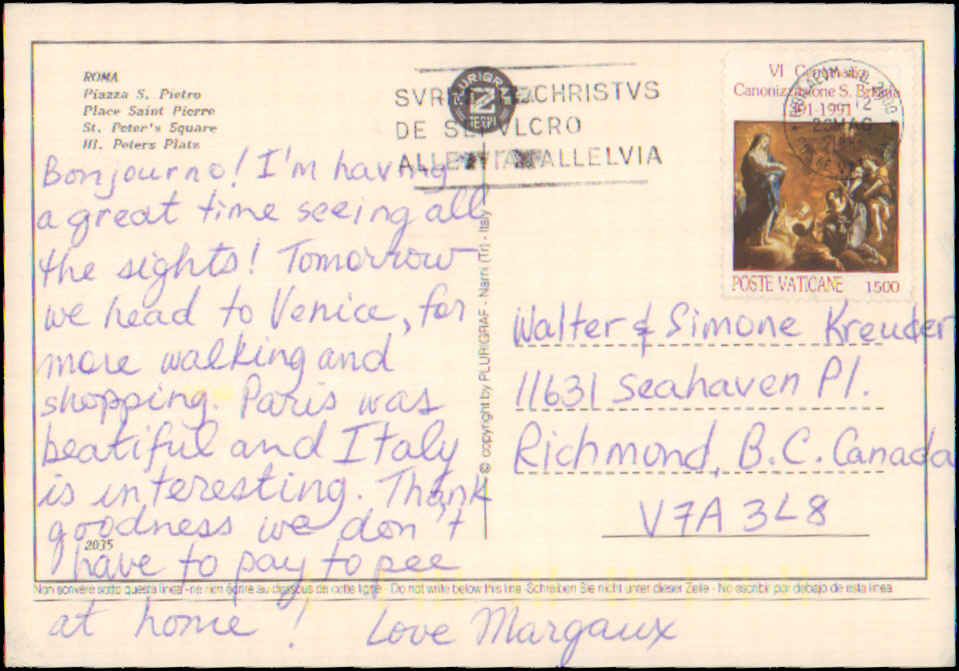 ROMA
Piazza S. Pietro
Place Saint Pierre
St. Peter's Square
Hl. Peters Platz
Bonjourno! I'm having
a great time seeing all
the sights! Tomorrow
we head to Venice, for
more walking and
shopping. Paris was
beatiful and Italy
is interesting. Thank
goodness we don't
have to pay to pee
at home! Love Margaux
2035
© copyright by PLURIGRAF - Narni (Tr) - Italy
PLURIGRAF
TERNI
CHRISTVS
DE SEPVLCRO
ALLELVIA ALLELVIA
VI Centenario
Canonizzazione S. Brigida
391-1991
POSTE VATICANE 1500
Walter & Simone Kreuder
11631 Seahaven Pl.
Richmond, B.C. Canada
V7A 3L8
Non scrivere sotto questa linea - ne rien écrire au dessous de cette ligne - Do not write below this line - Schreiben Sie nicht unter dieser Zeile - No escribir por debajo de esta linea